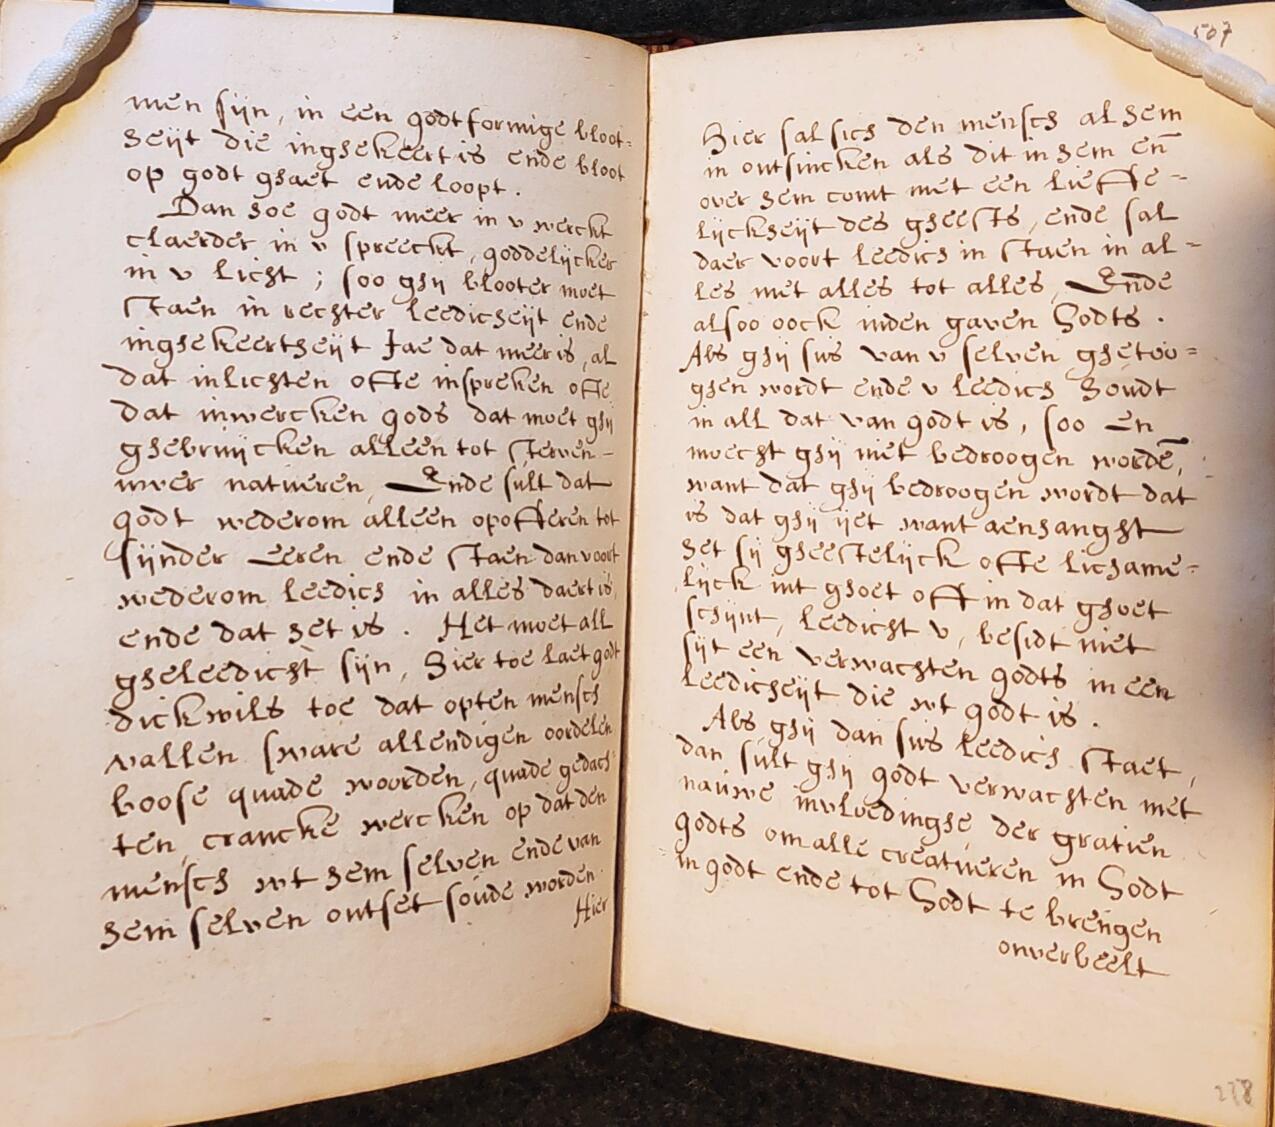 men sijn, in een godtformige bloot=
heijt die inghekeert is ende bloot
op godt ghaet ende loopt.
Dan hoe godt meer in v werckt
claerder in v spreeckt, goddelijcker
in v licht; soo ghij blooter moet
staen in rechter leedicheijt ende
inghekeertheijt Jae dat meer is, al
dat inlichten ofte inspreken ofte
dat inwercken gods dat moet ghij
ghebruijcken alleen tot sterven-
uwer natueren, Ende sult dat
godt wederom alleen opofferen tot
sijnder Eeren ende staen dan voort
wederom leedich in alles daert is,
ende dat het is. Het moet all
gheleedicht sijn, Hier toe laet godt
dickwils toe dat opten mensch
vallen sware allendigen oordelen
boose quade woorden, quade gedach
ten, crancke wercken op dat den
mensch wt hem selven ende van
hem selven ontset soude worden.
Hier
507
Hier sal sich den mensch al hem
in ontsincken als dit in hem en̄
over hem comt met een lieffe-
lijckheijt des gheests, ende sal
daer voort leedich in staen in al-
les met alles tot alles, Ende
alsoo oock inden gaven Godts.
Als ghij sus van v selven ghetoo=
ghen wordt ende v leedich houdt
in all dat van godt is, soo en
moecht ghij niet bedroogen wordē,
want dat ghij bedroogen wordt dat
is dat ghij ijet want aenhanght
het sij gheestelijck ofte lichame=
lijck int ghoet oft in dat ghoet
schijnt, leedicht v, besidt niet
sijt een verwachten godts in een
leedicheijt die wt godt is.
Als ghij dan sus leedich staet,
dan sult ghij godt verwachten met
nauwe invloedinghe der gratien
godts om alle creatueren in Godt
in godt ende tot Godt te brengen
onverbeelt
238